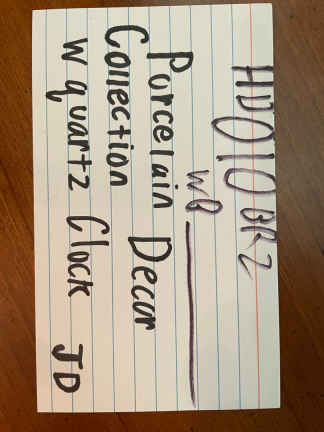 HD010 OR2
WQ
Porcelain Decor
Collection
W quartz Clock JD